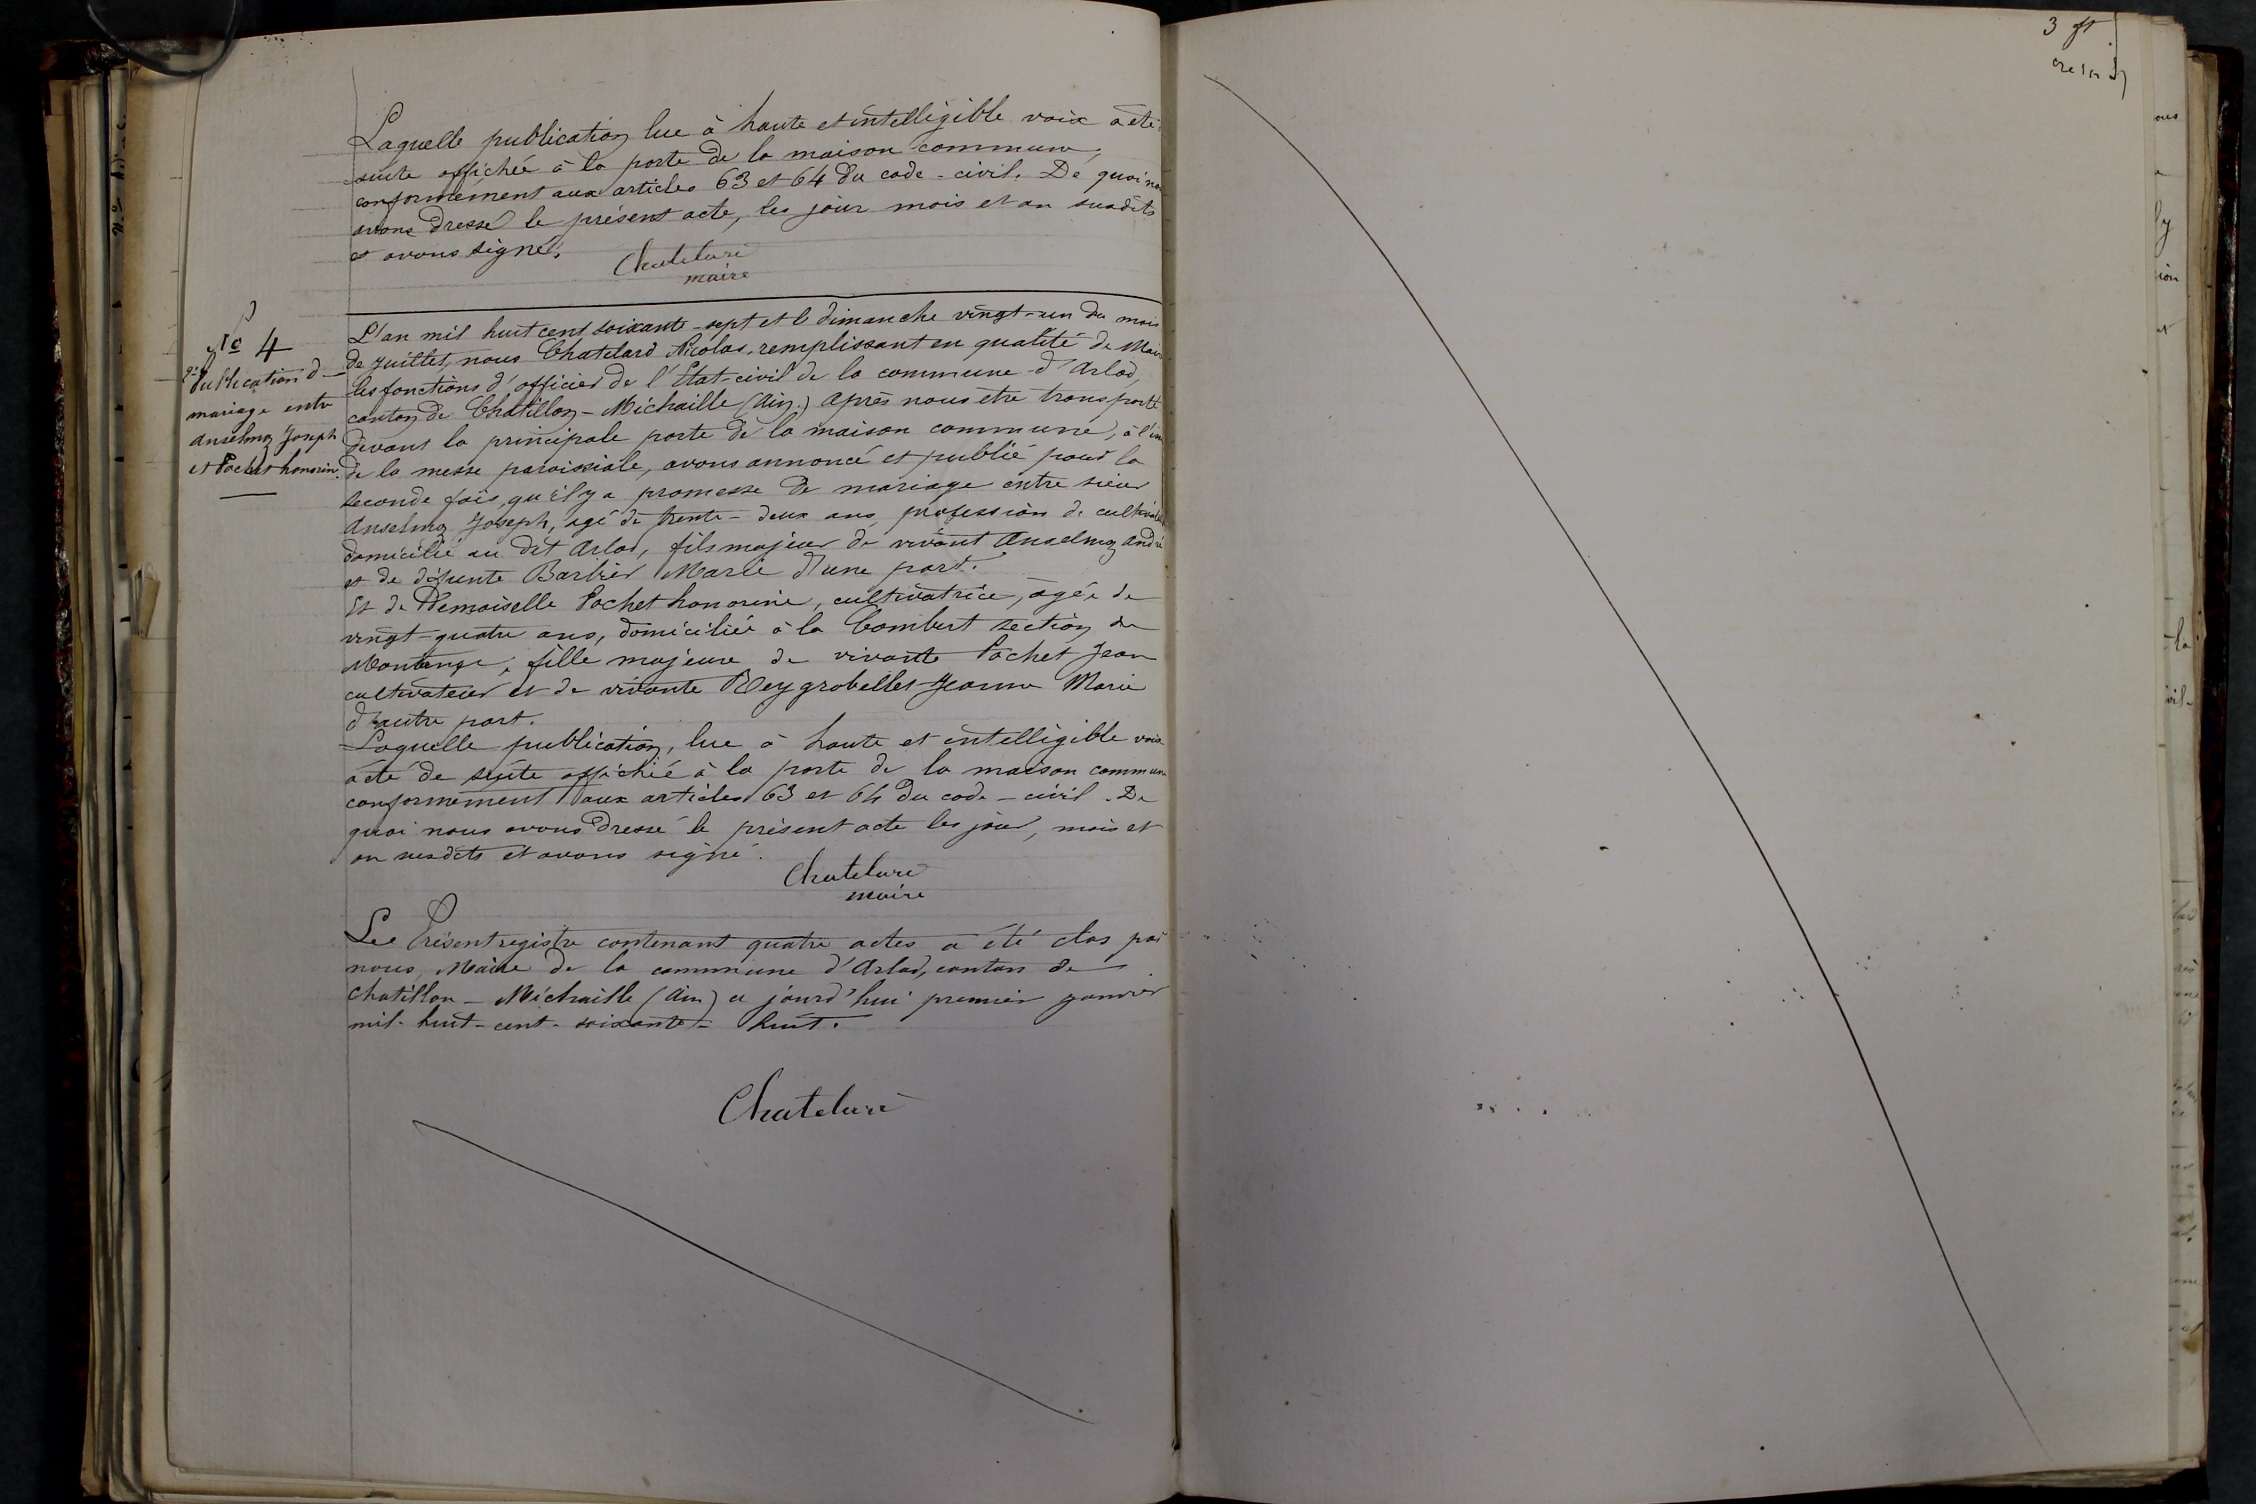 Laquelle publication lue à haute et intelligible voix a été
suite affichée à la porte de la maison commune,
conformément aux articles 63 et 64 du code-civil. De quoi nous
avons dressé le présent acte, les jour mois et an susdits
et avons signé.
Chatelard
maire
No 4
2e Publication de
mariage entre
Anselmoz Joseph
et Pochet honorine.
L'an mil huit cent soixante-sept et le dimanche vingt-un du mois
de juillet, nous Chatelard Nicolas, remplissant en qualité de Maire
les fonctions d'officier de l'Etat-civil de la commune d'Arlod,
canton de Chatillon-Michaille (Ain.) après nous être transporté
devant la principale porte de la maison commune, à l'issue
de la messe paroissiale, avons annoncé et publié pour la
seconde fois, qu'il y a promesse de mariage entre sieur
Anselmoz Joseph, agé de trente-deux ans, profession de cultivateur
domicilié au dit Arlod, fils majeur de vivant Anselmoz André
et de défunte Barbier Marie d'une part.
Et de Demoiselle Pochet honorine, cultivatrice, agée de
vingt-quatre ans, domiciliée à la Combert section de
Montange, fille majeure de vivante Pochet Jean
cultivateur et de vivante Reygrobellet Jeanne Marie
d'autre part.
Laquelle publication, lue à haute et intelligible voix
a été de suite affichée à la porte de la maison commune
conformément aux articles 63 et 64 du code-civil. De
quoi nous avons dressé le présent acte les jour, mois et
an susdits et avons signé.
Chatelard
maire
Le Présent registre contenant quatre actes a été clos par
nous, Maire de la commune d'Arlod, canton de
Chatillon-Michaille (Ain) ajourd'hui premier janvier
mil-huit-cent-soixante-huit.
Chatelard
3